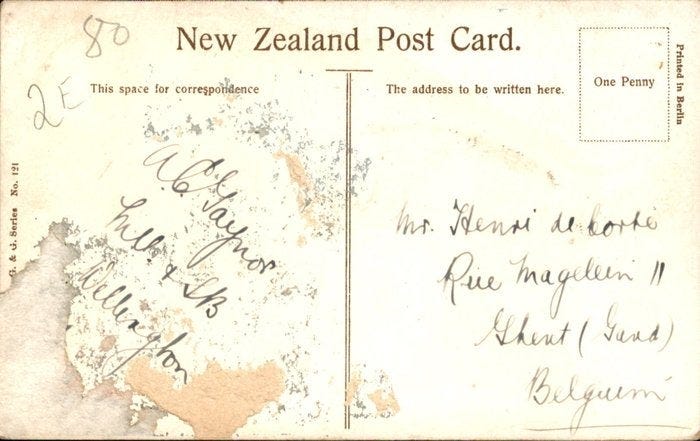 80
2E
New Zealand Post Card.
This space for correspondence
The address to be written here.
One Penny
Printed in Berlin
G. & G. Series No. 121
A.C. Gaynor
Wellington
Mr. Henri de Corte
Rue Magellein 11
Ghent (Gand)
Belguim